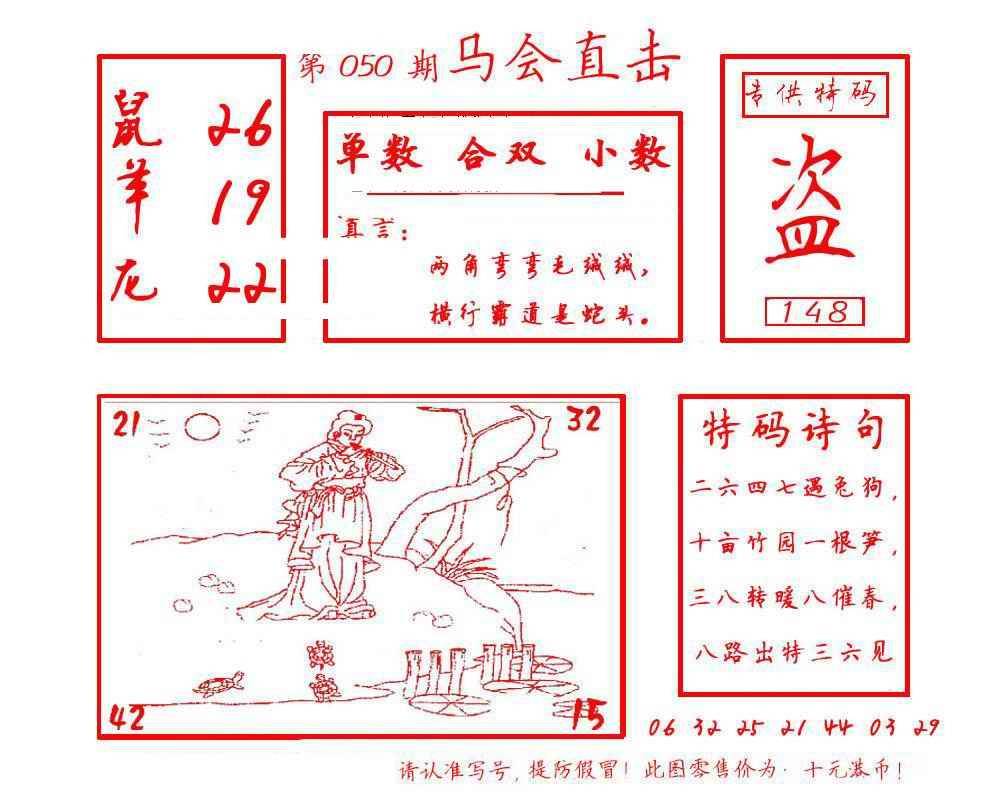 第 050 期 马会直击
鼠 26
羊 19
龙 22
单数 合双 小数
直言：
两角弯弯毛绒绒，
横行霸道是蛇头。
专供特码
盗
148
21
32
42
15
特码诗句
二六四七遇兔狗，
十亩竹园一根笋，
三八转暖八催春，
八路出特三六见
06 32 25 21 44 03 29
请认准写号，提防假冒！此图零售价为·十元港币！